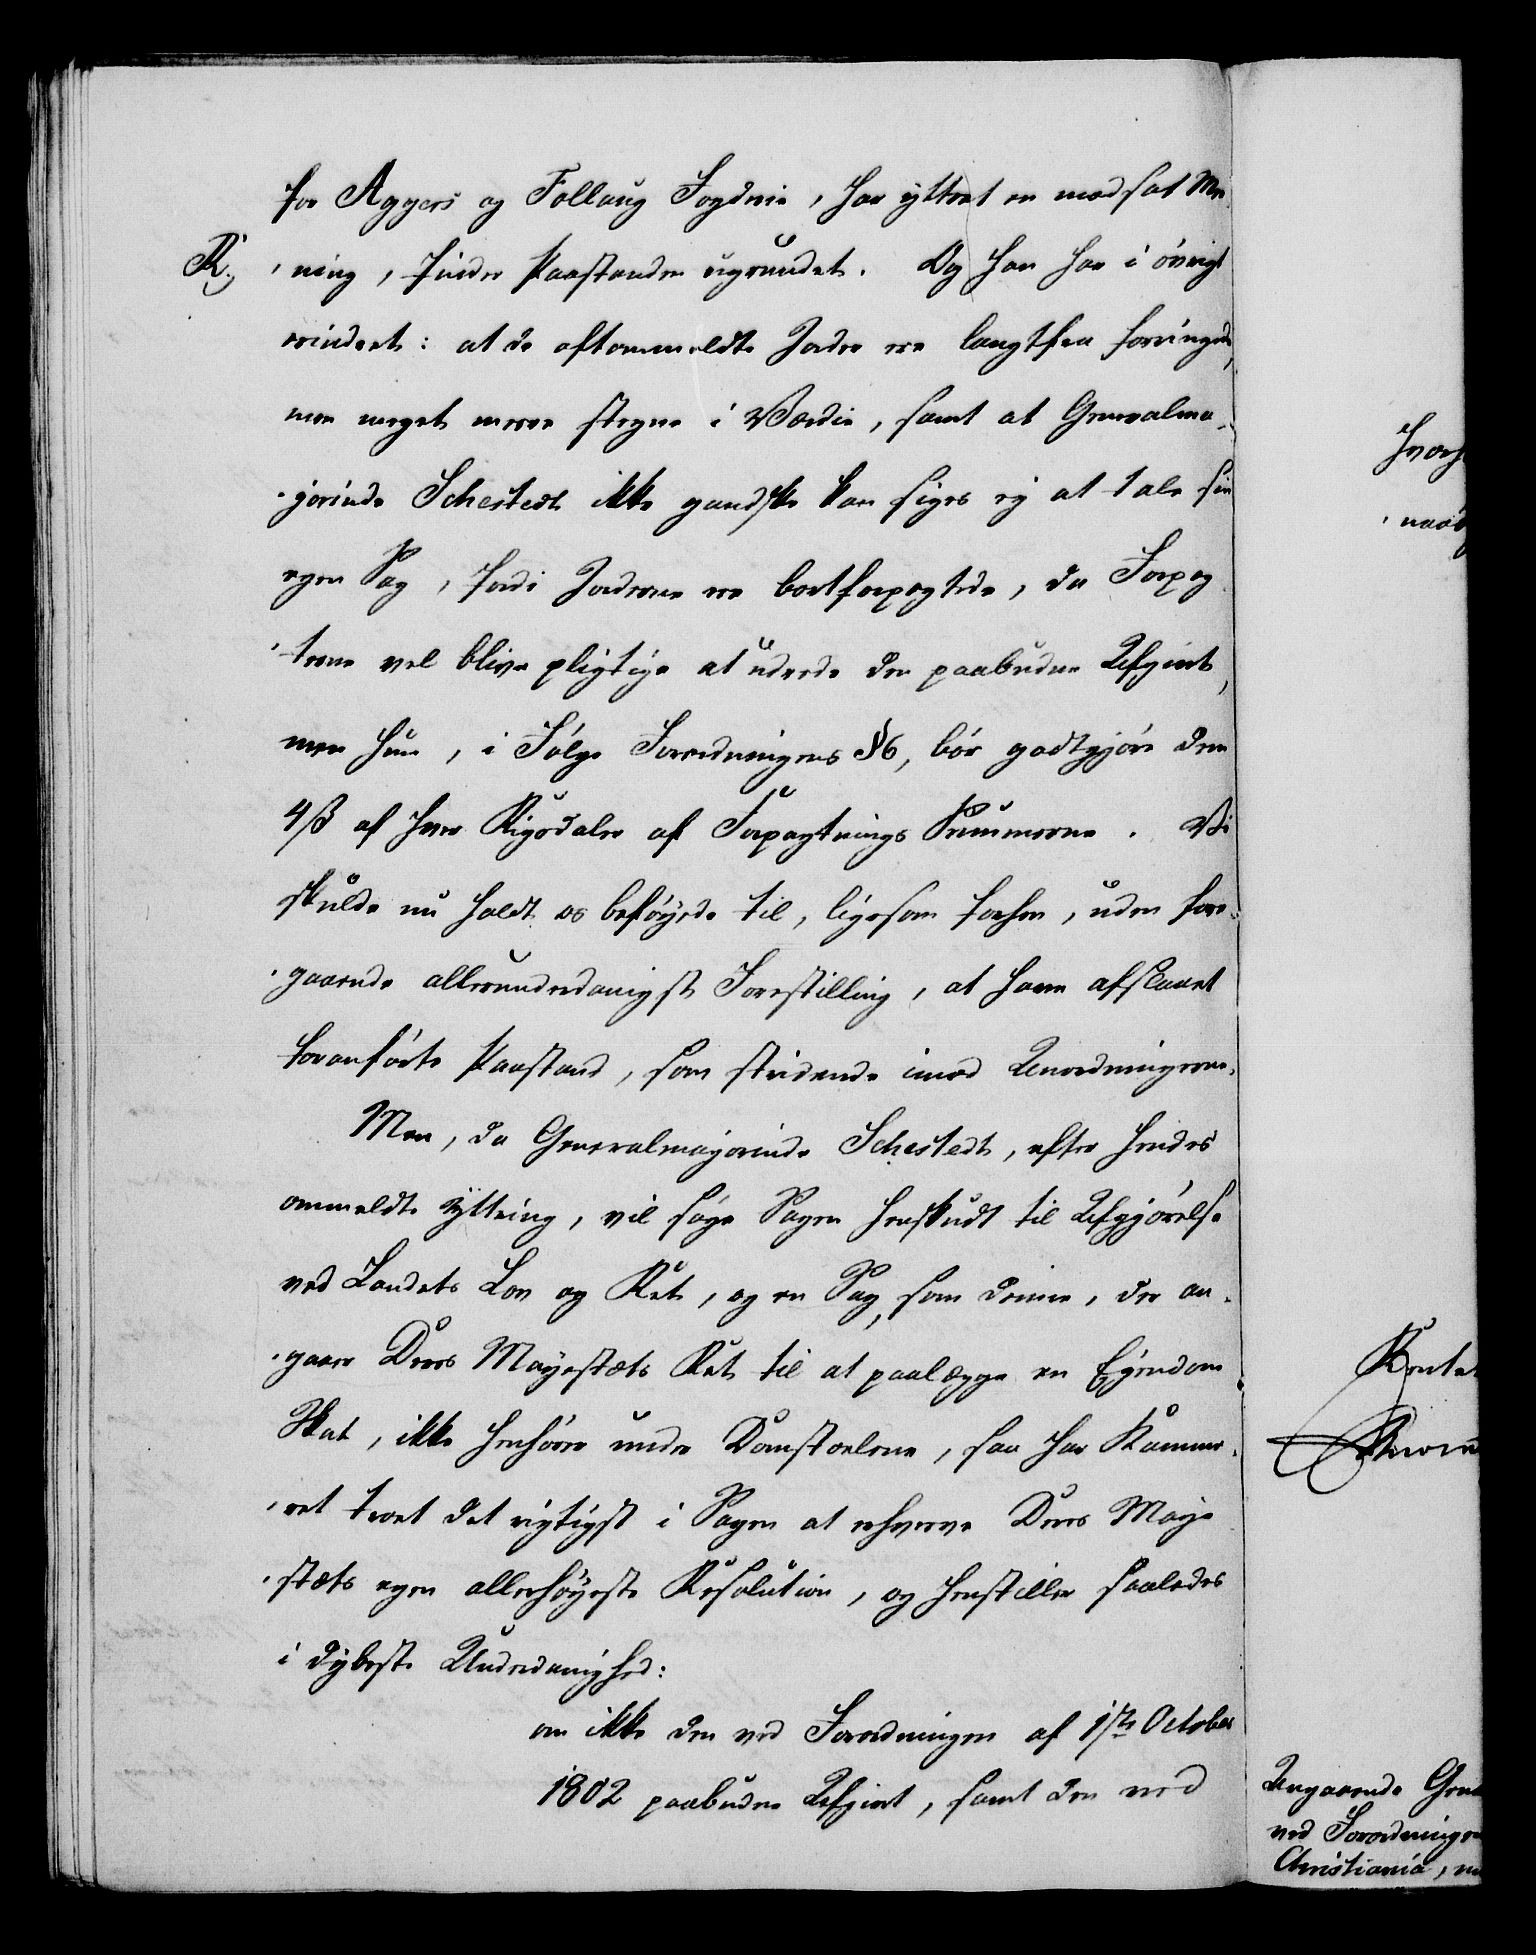 for Aggers og Follaug Fogderie, har yttret en modsat Me-
R.
ning, finder Paastanden ugrundet. Og han har i övrigt
erindret: at de oftommeldte Jorder ere langtfra forringede,
men meget meere stegne i Værdie, samt at Generalma-
jorinde Schestedt ikke gandske kan siges ej at tale sin
egen Sag, fordi Jorderne ere bortforpagtede, da Forpag
terne vel blive pligtige at udrede den paabudne Afgivt,
men hun, i Følge Forordningens § 6, bör godtgjöre dem
4 ß af hver Rigsdaler af Forpagtnings Summerne. Vi
skulde nu holdt os beföjede til, ligesom forhen, uden fore-
gaaende allerunderdanigst Forestilling, at have afslaaet
foranförte Paastand, som stridende imod Anordningerne.
Men, da Generalmajorinde Schestedt, efter hendes
ommeldte Yttring, vil söge Sagen henskudt til Afgjörelse
ved Landets Lov og Ret, og en Sag, som denne, der an-
gaaer Deres Majestæts Ret til at paalægge en Ejendom
Skat, ikke henhörer under Domstolene, saa har Kamme-
ret troet det rigtigst i Sagen at erhverve Deres Maje
stæts egen allerhöjeste Resolution, og henstiller saaledes
i dybeste Underdanighed:
om ikke den ved Forordningen af 1ste October
1802 paabudne Afgivt, samt den ved
Angaaende Gene
ved Forordningen
Christiania,